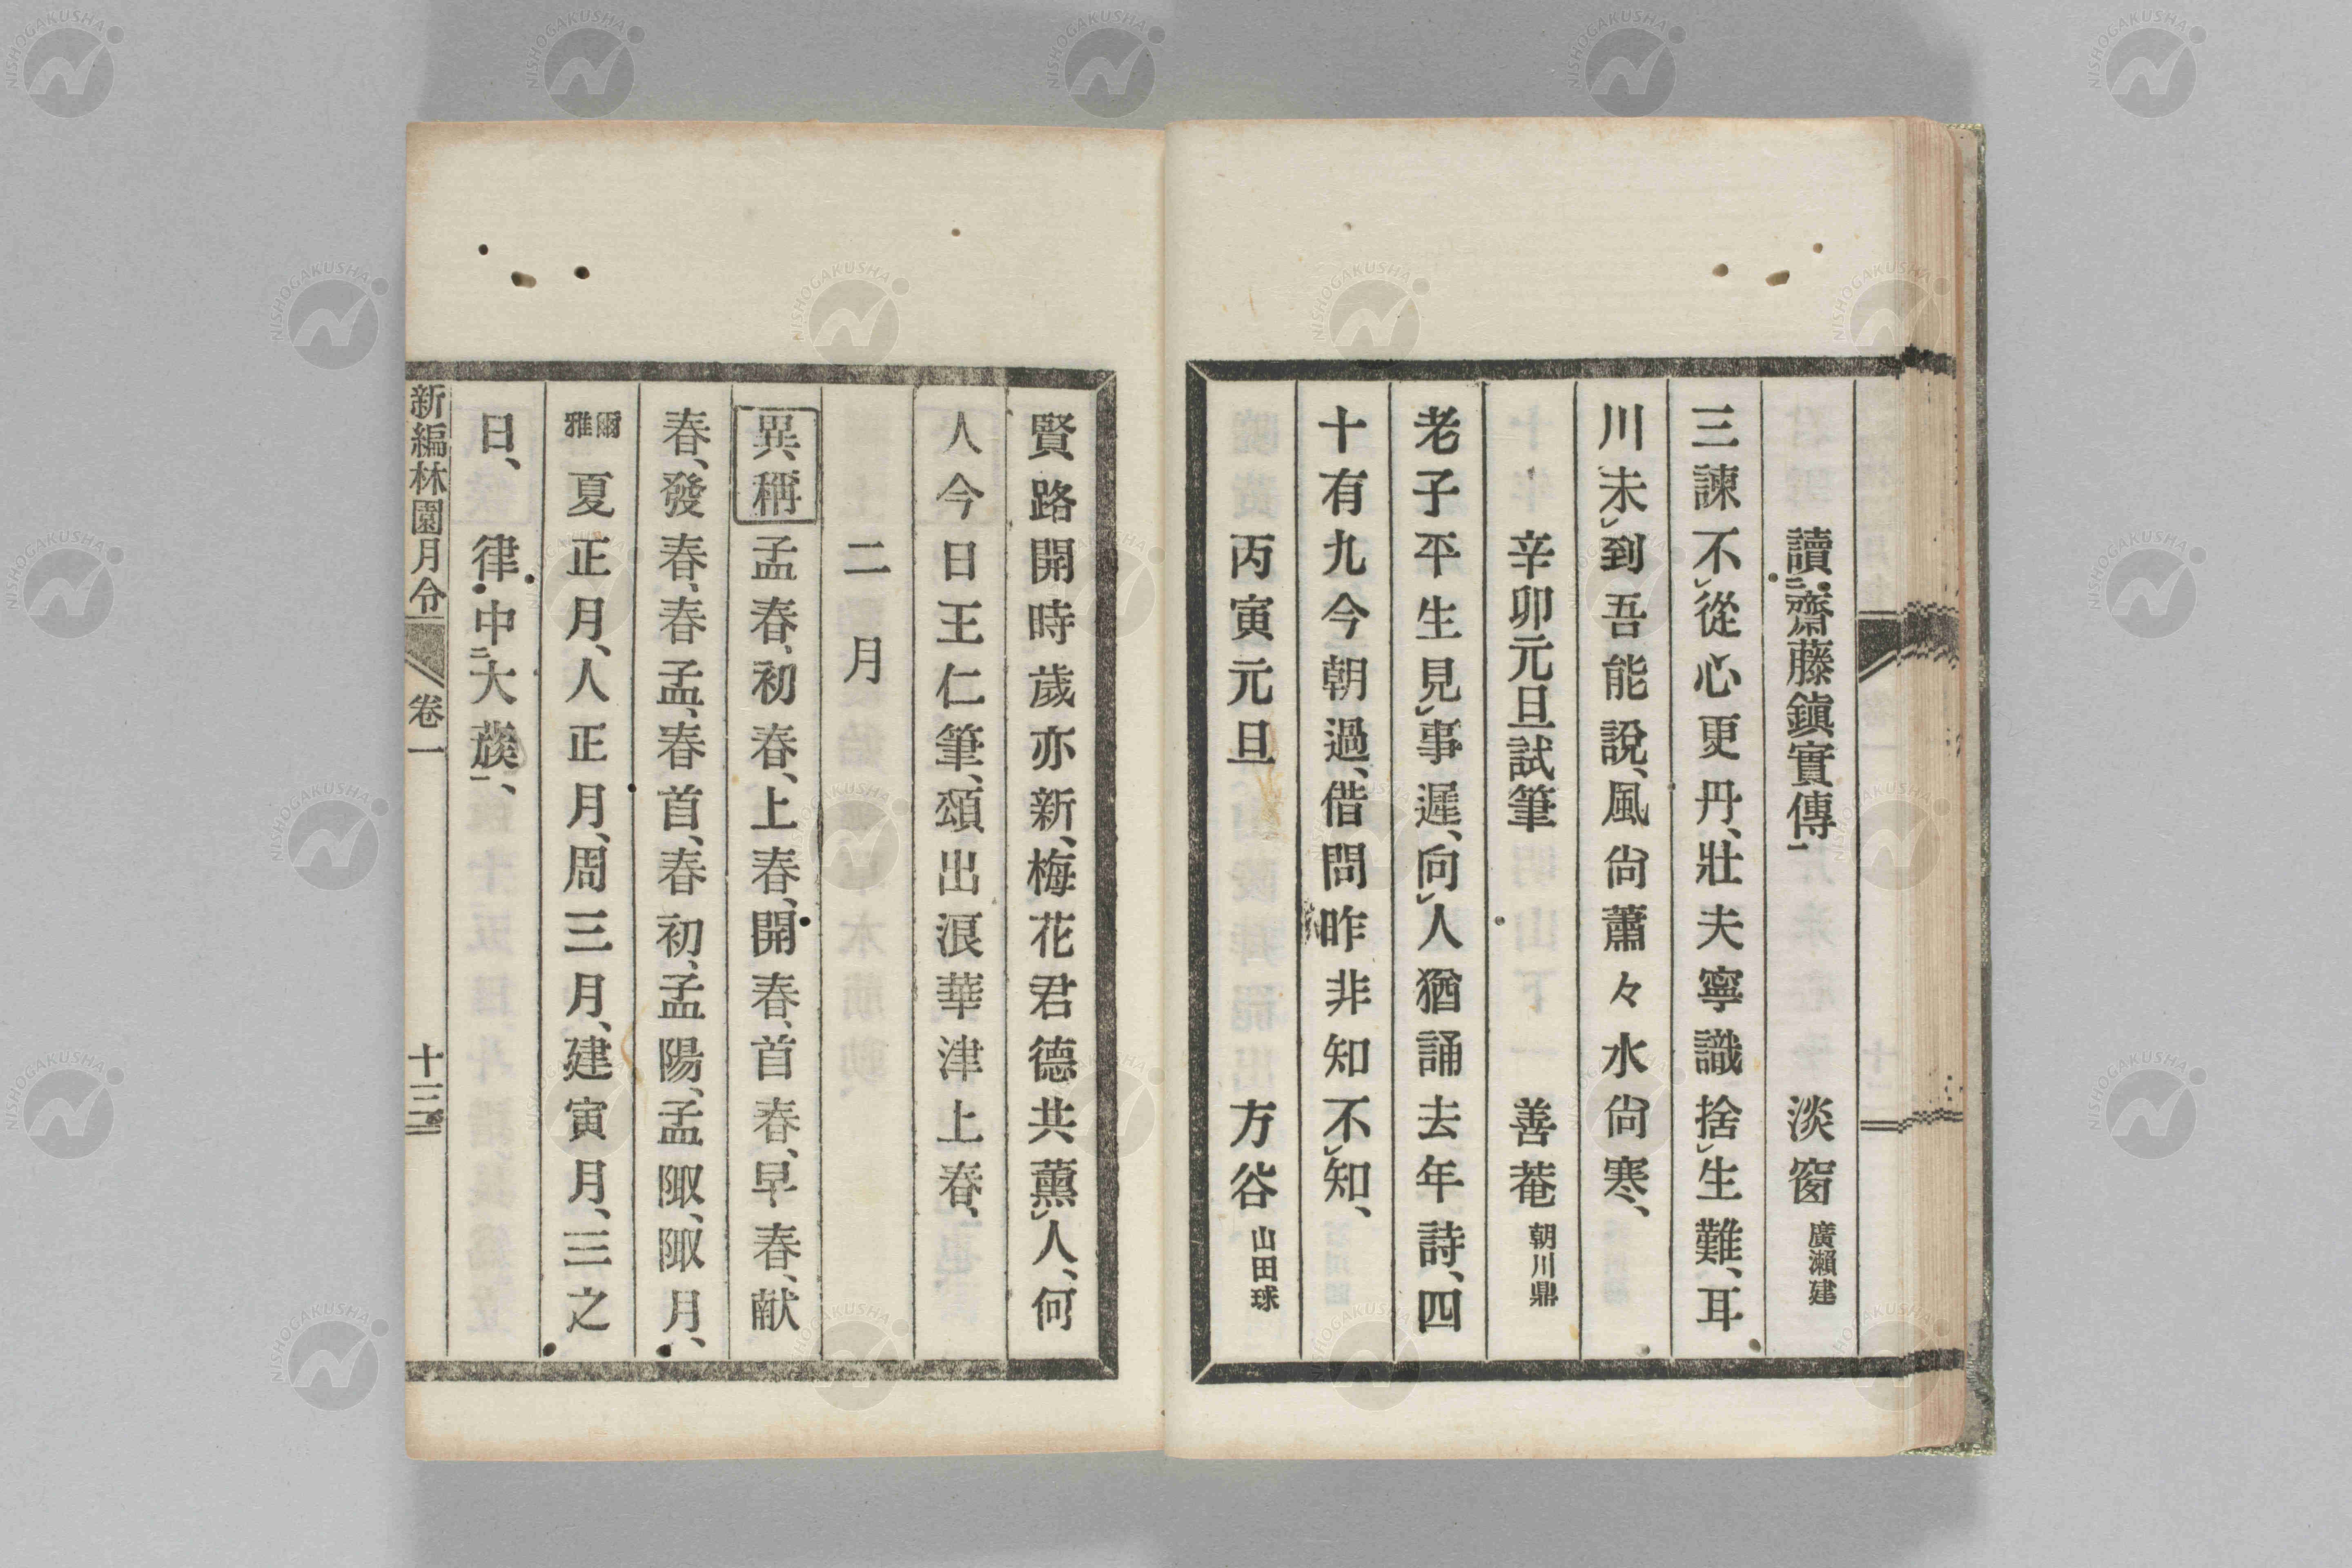 讀齋藤鎭實傳 淡窗 廣瀨建
三諫不從心更丹、壯夫寧識捨生難、耳
川未到吾能說、風尙蕭々水尙寒、
辛卯元旦試筆 善菴 朝川鼎
老子平生見事遲、向人猶誦去年詩、四
十有九今朝過、借問昨非知不知、
丙寅元旦 方谷 山田球
賢路開時歲亦新、梅花君德共薰人、何
人今日王仁筆、頌出浪華津上春、
二月
異、稱 孟春、初春、上春、開春、首春、早春、献
春、發春、春孟、春首、春初、孟陽、孟陬、陬月、
爾雅 夏正月、人正月、周三月、建寅月、三之
日、 律中大蔟、
新編林園月令 卷一 十三
NISHOGAKUSHA